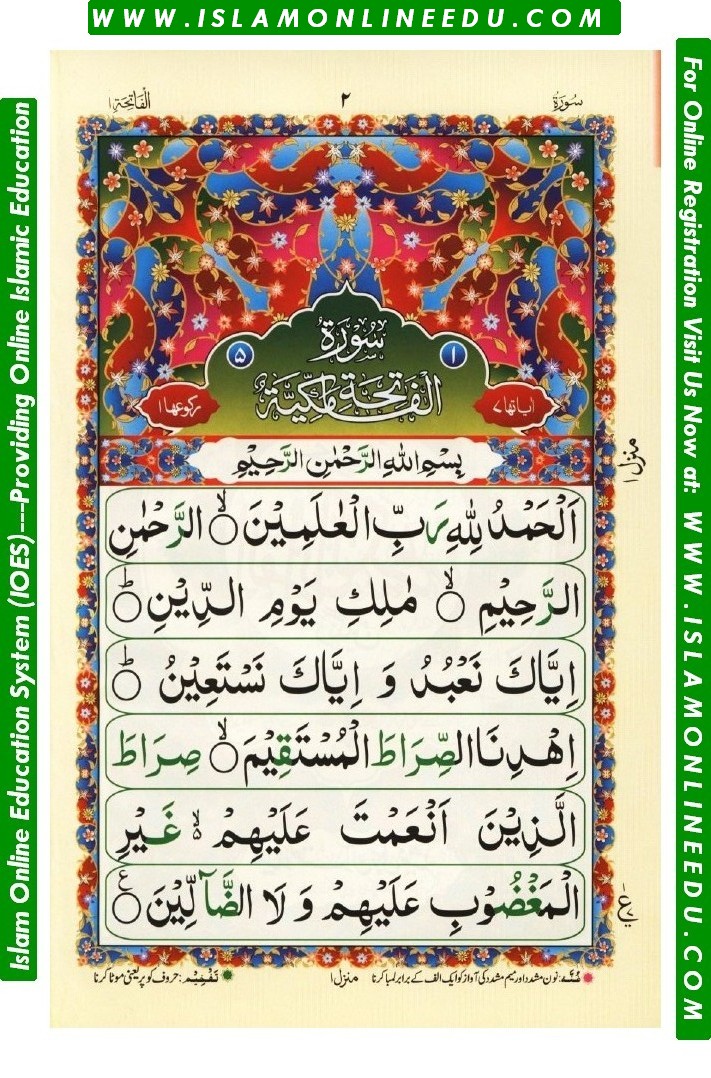 WWW.ISLAMONLINEEDU.COM
Islam Online Education System (IOES)---Providing Online Islamic Education
For Online Registration Visit Us Now at: WWW.ISLAMONLINEEDU.COM
سورة ٢ الفاتحة ١
سُورَةُ
١ ٥
الفَاتِحَةِ مَكِّيَّةٌ
اٰیاتها ٧ رکوعها ١
بِسْمِ اللهِ الرَّحْمٰنِ الرَّحِيْمِ
منزل ١
اَلْحَمْدُ لِلّٰهِ رَبِّ الْعٰلَمِيْنَ ۙ الرَّحْمٰنِ
الرَّحِيْمِ ۙ مٰلِكِ يَوْمِ الدِّيْنِ ؕ
اِيَّاكَ نَعْبُدُ وَ اِيَّاكَ نَسْتَعِيْنُ ؕ
اِهْدِنَا الصِّرَاطَ الْمُسْتَقِيْمَ ۙ صِرَاطَ
الَّذِيْنَ اَنْعَمْتَ عَلَيْهِمْ ۙ۬ غَيْرِ
الْمَغْضُوْبِ عَلَيْهِمْ وَ لَا الضَّآلِّيْنَ
غُنَّه: نون مشدد اور میم مشدد کی آواز کو ایک الف کے برابر لمبا کرنا منزل ١ تَفْخِيْم: حروف کو پر یعنی موٹا کرنا